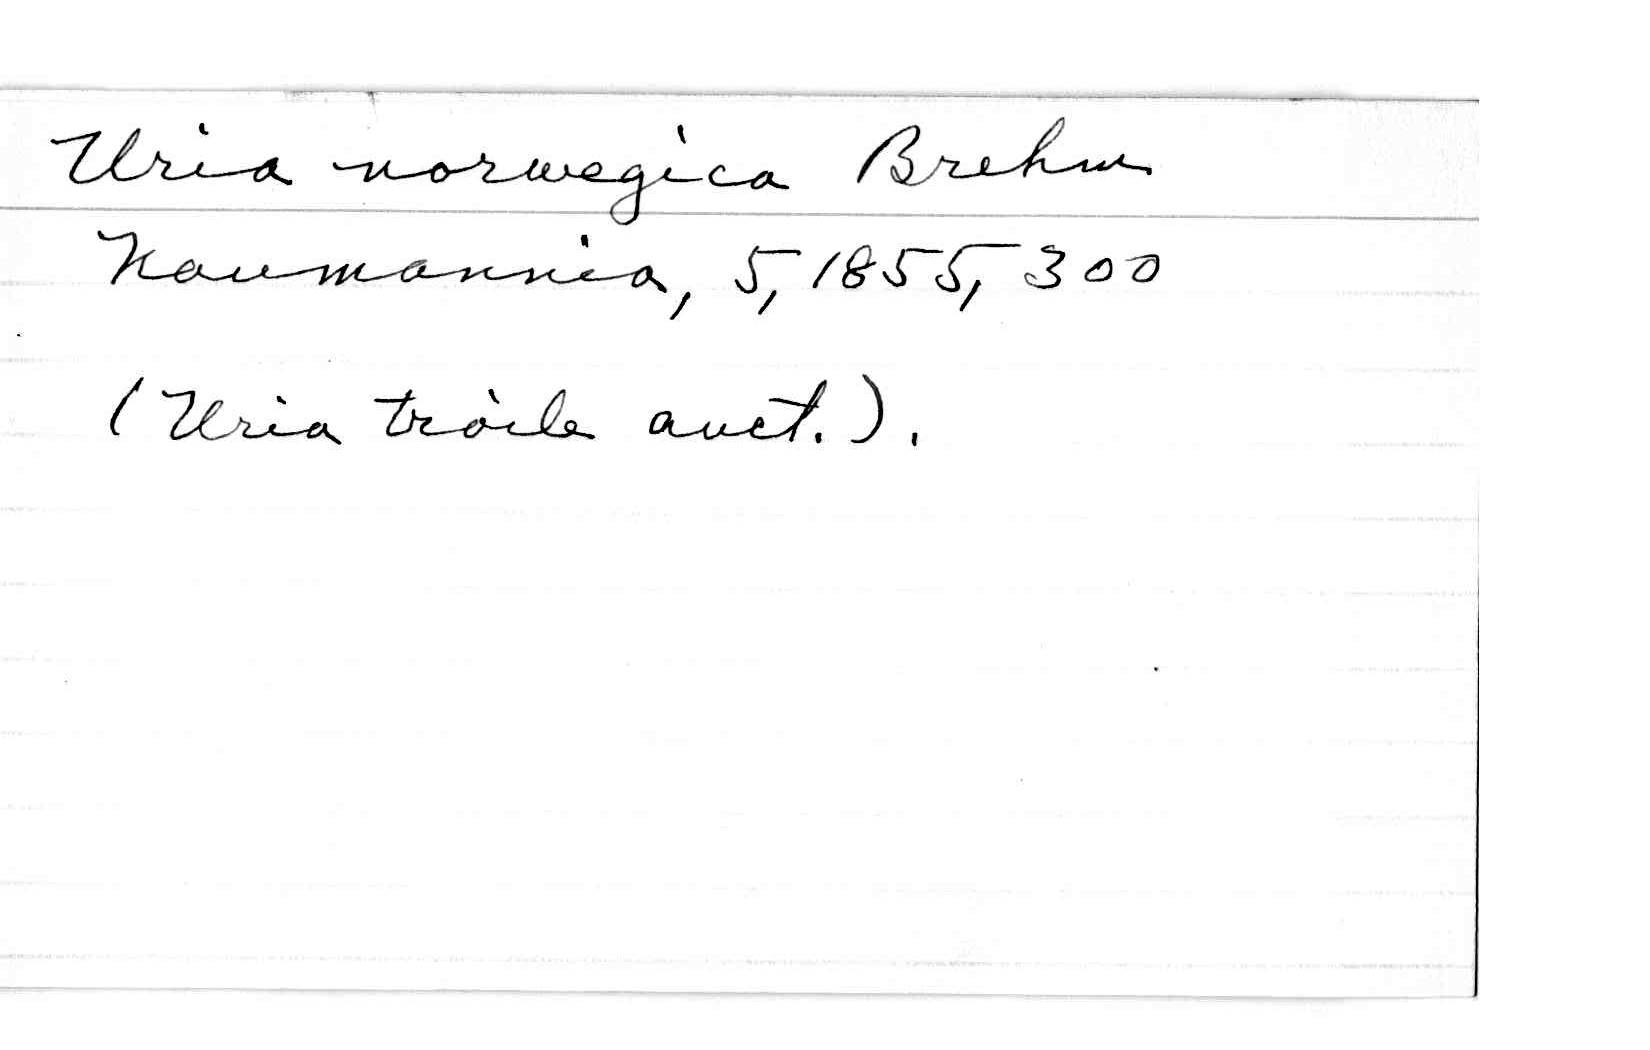 Uria norwegica Brehm
Naumannia, 5, 1855, 300
(Uria troile auct.).